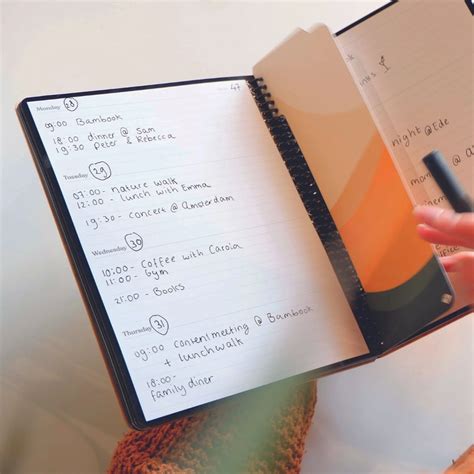 47
Monday 28
09:00 Bambook
18:00 dinner @ Sam
19:30 Peter & Rebecca
Tuesday 29
07:00 - nature walk
12:00 - lunch with Emma
19:30 - concert @ Amsterdam
Wednesday 30
10:00 - Coffee with Carola
11:00 - Gym
21:00 - Books
Thursday 31
09:00 content meeting @ Bambook
+ lunch walk
18:00 -
family diner
night @ Ede